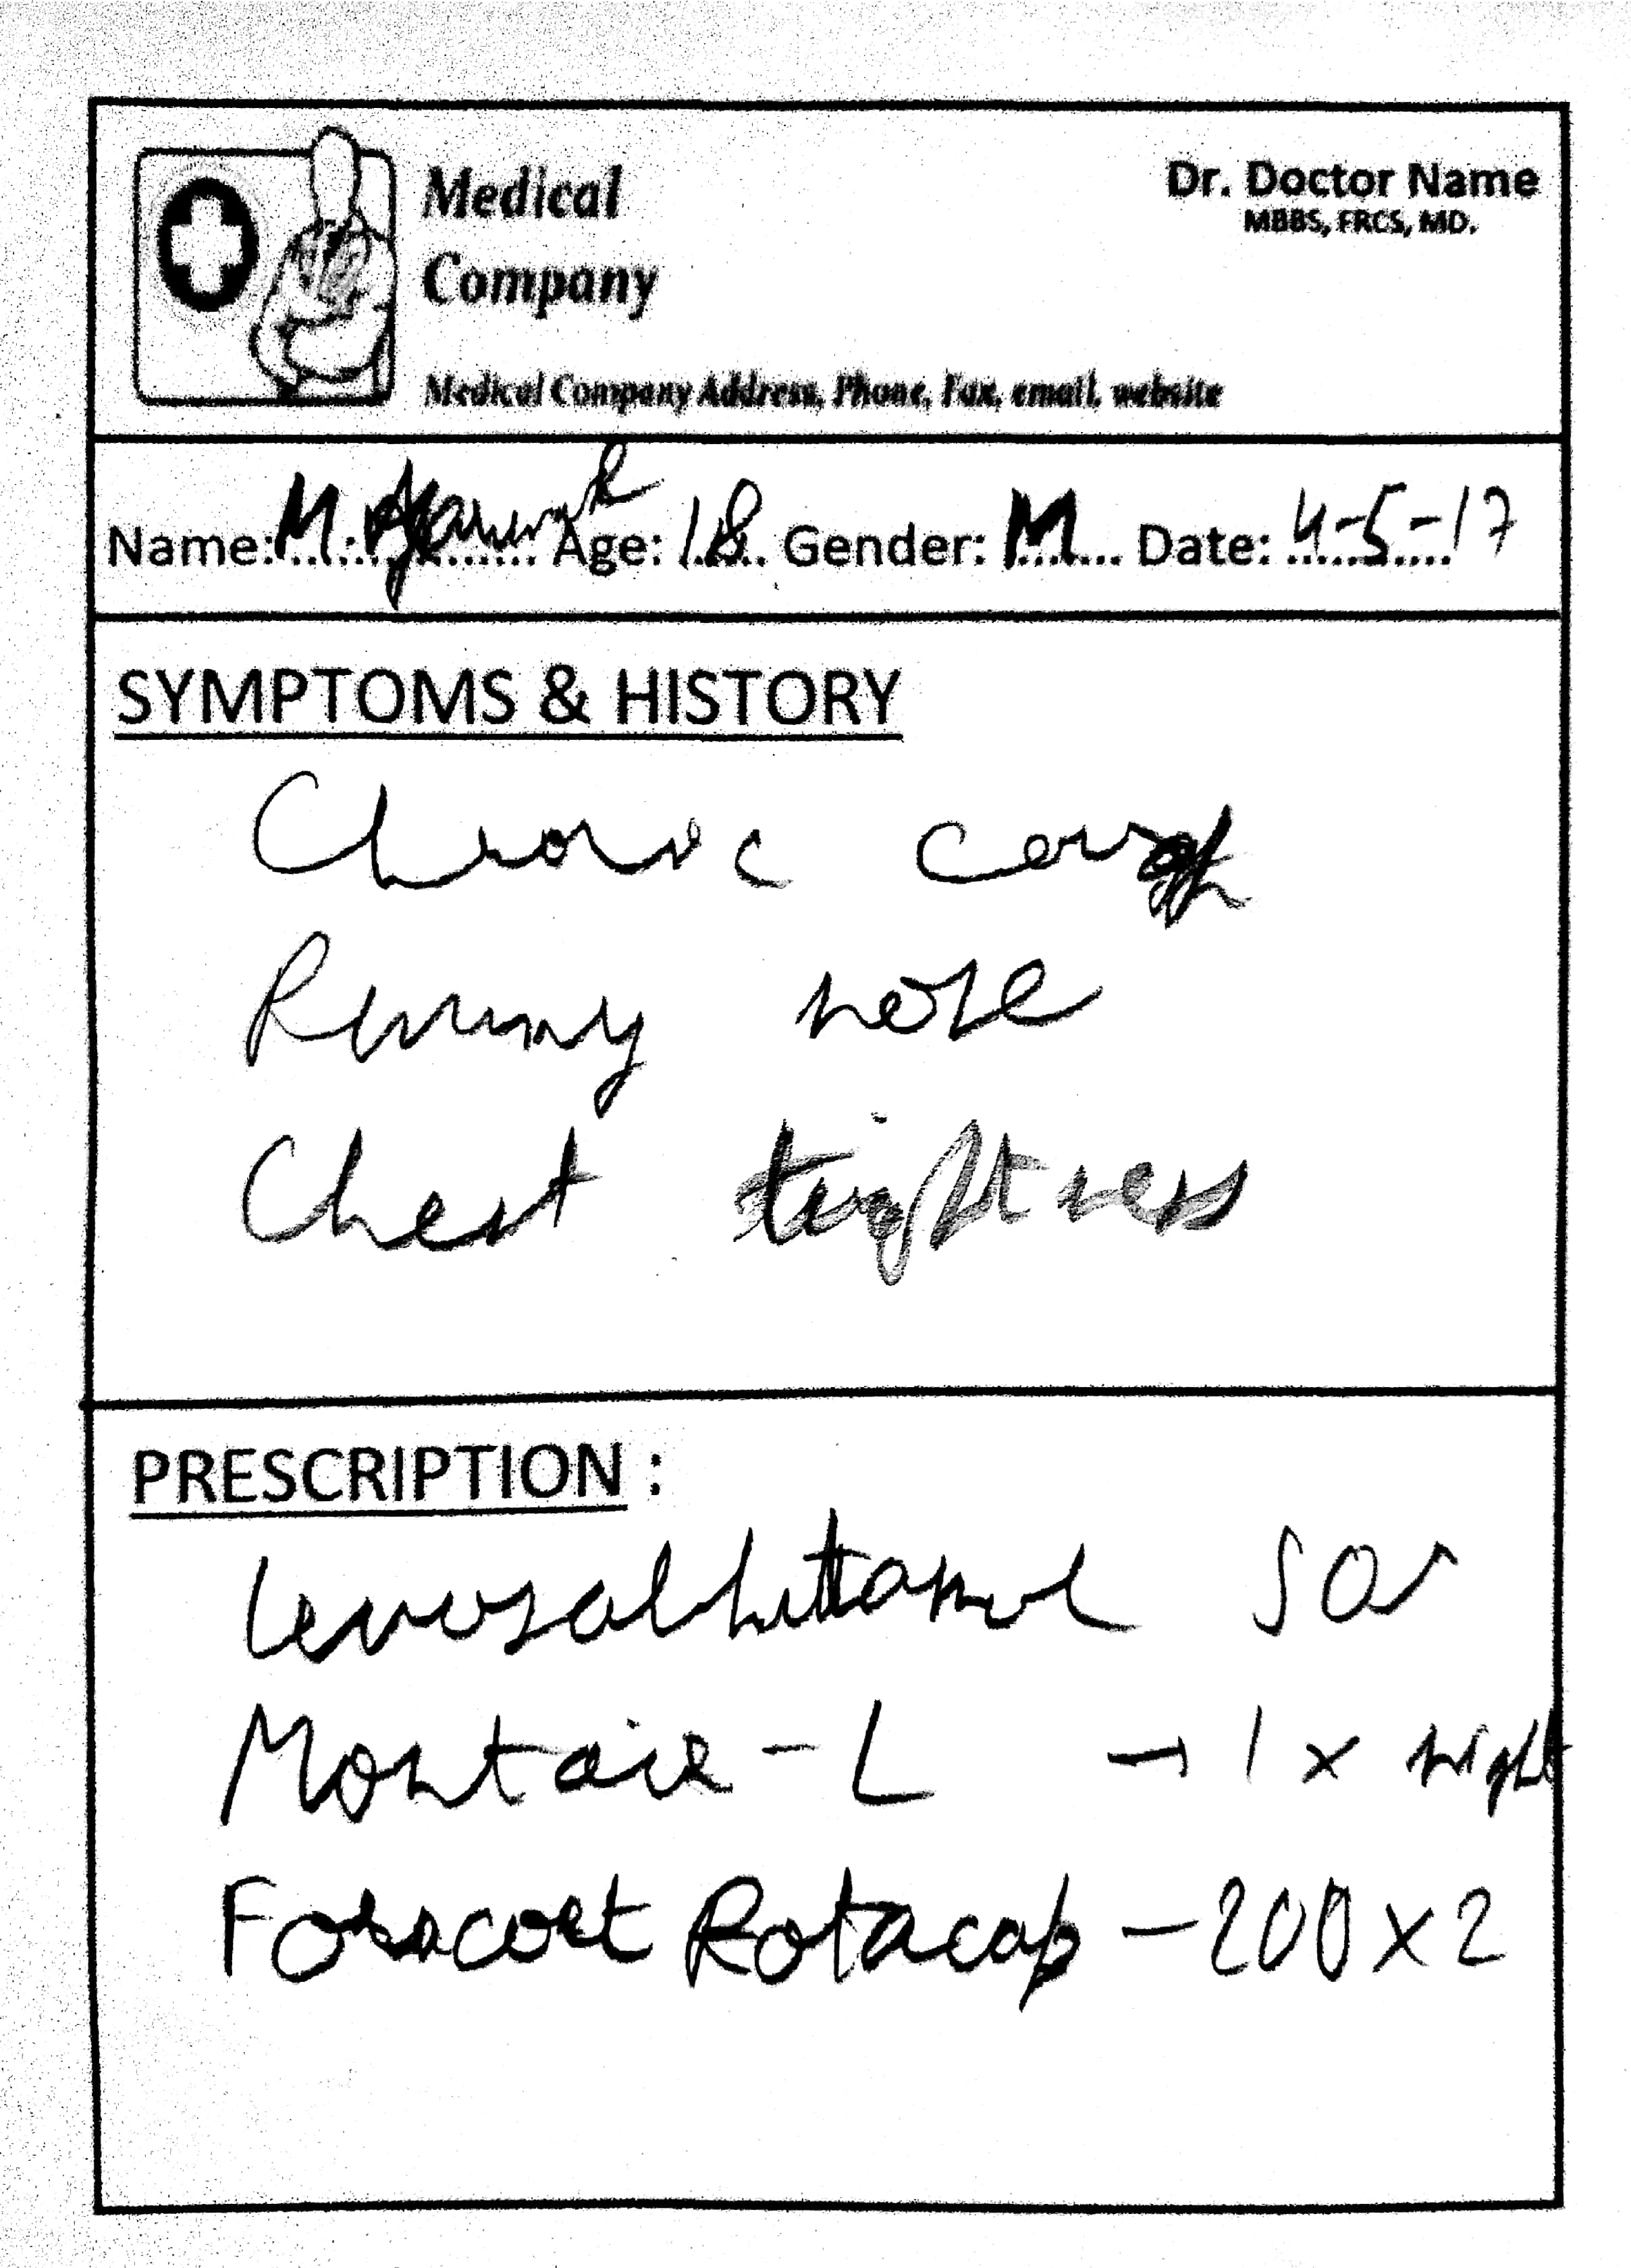 Medical
Company
Dr. Doctor Name
MBBS, FRCS, MD.
Medical Company Address, Phone, Fax, email, website
Name: M. Age: 18 Gender: M Date: 4-5-17
SYMPTOMS & HISTORY
Chronic cough
Runny nose
Chest tightness
PRESCRIPTION :
Levosalbutamol SOS
Montair - L → 1 x night
Foracort Rotacap - 200 x 2